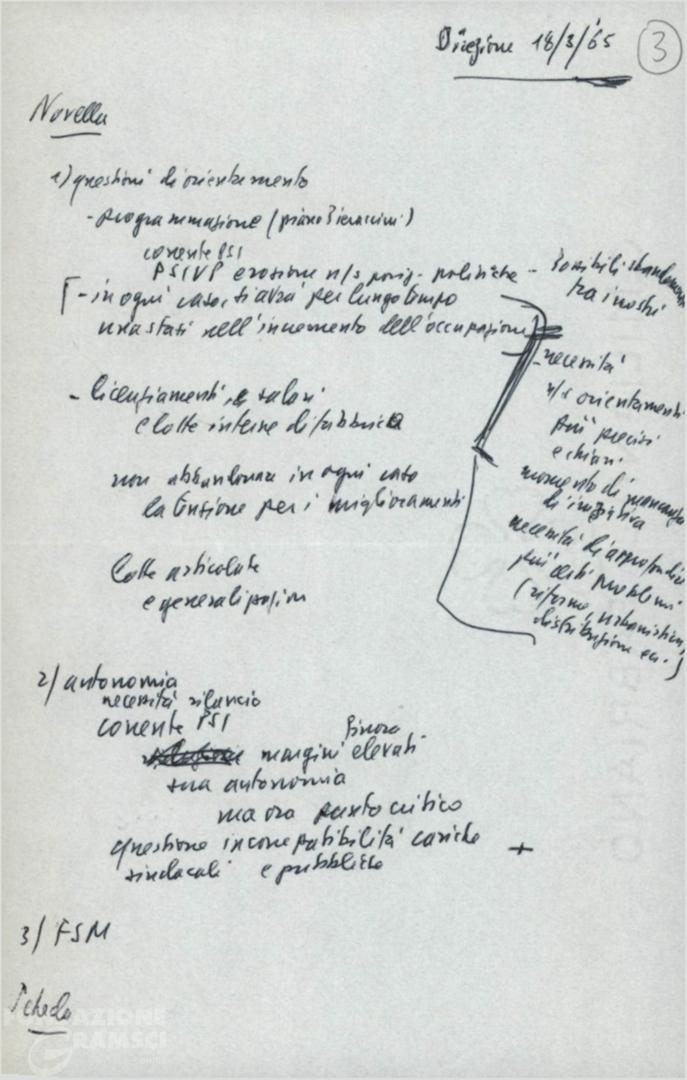 Direzione 18/3/65
3
Novella
1) questioni di orientamento
- programmazione (piano Pieraccini)
corrente PSI
PSIUP erosione n/s posiz. politiche - Possibili sbandamenti
tra i nostri
- in ogni caso si avrà per lungo tempo
una stasi nell'incremento dell'occupazione
- necessità
n/s orientamenti
più precisi
e chiari
- licenziamenti e salari
e lotte interne di fabbrica
momento di mancanza
di iniziativa
non abbandonare in ogni caso
la tensione per i miglioramenti
necessità di approfondire
più certi problemi
(riforme, urbanistica,
distribuzione ecc.)
lotte articolate
e generalizzazion
2) autonomia
necessità rilancio
corrente PSI
Finora
margini elevati
sua autonomia
ma ora punto critico
questione incompatibilità cariche +
sindacali e pubbliche
3) FSM
Scheda
FONDAZIONE
GRAMSCI